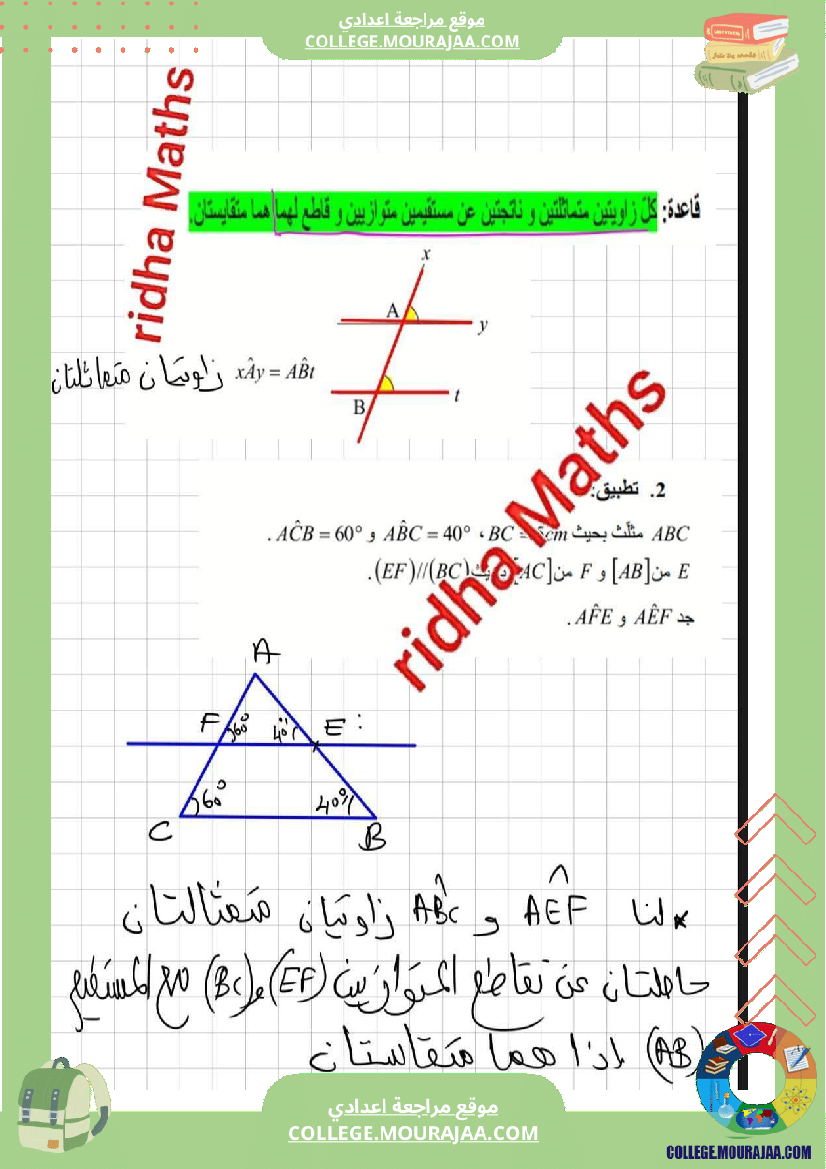 موقع مراجعة اعدادي
COLLEGE.MOURAJAA.COM
ridha Maths
قاعدة: كلّ زاويتين متماثلتين و ناتجتين عن مستقيمين متوازيين و قاطع لهما هما متقايستان.
x
A
y
xÂy = AB̂t زاويتان متماثلتان
B
t
ridha Maths
2. تطبيق:
ABC مثلّث بحيث BC = cm ، AB̂C = 40° و AĈB = 60° .
E من [AB] و F من [AC] (EF)//(BC).
جد AÊF و AF̂E .
A
F 60° 40° E :
60° 40°
C B
* لنا AÊF و AB̂C زاويتان متماثلتان
حاصلتان عن تقاطع المتوازيين (EF) و (BC) مع المستقيم
(AB) إذا هما متقاستان
موقع مراجعة اعدادي
COLLEGE.MOURAJAA.COM
COLLEGE.MOURAJAA.COM